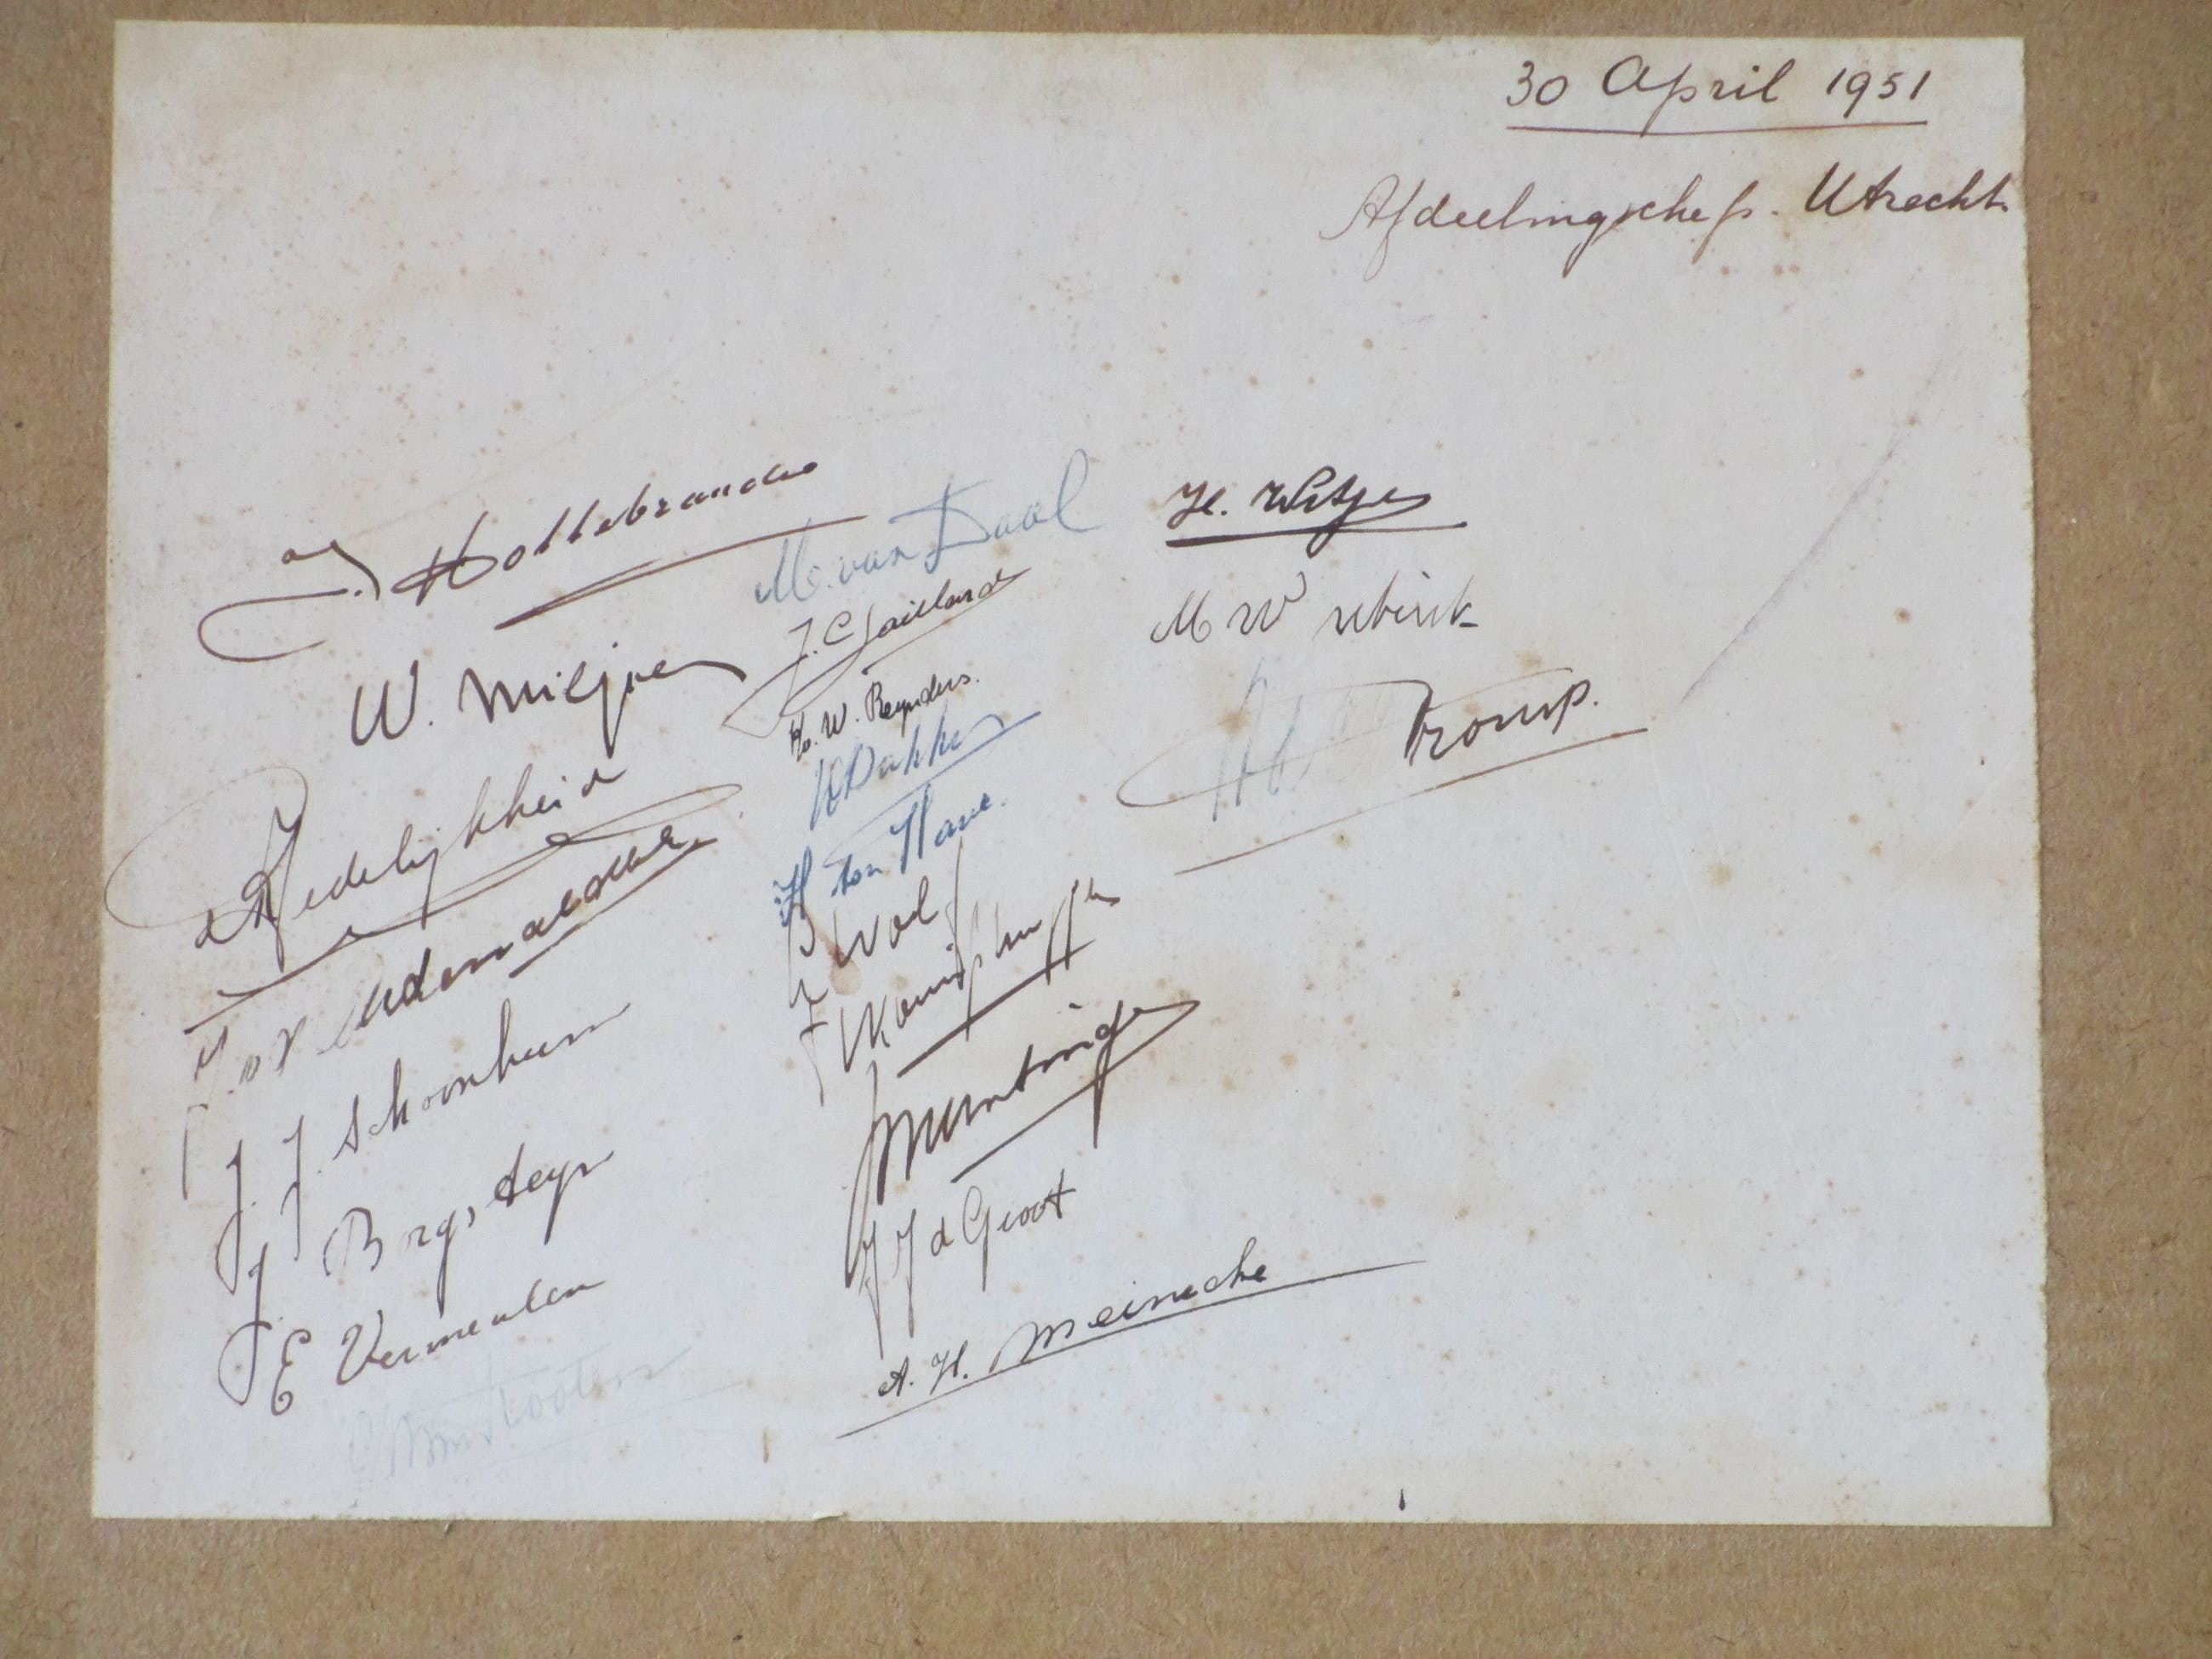 30 April 1951
Afdeelingschefs. Utrecht.
J. Hollebrands
W. Miljoen
Redelijkheid
J. J. Schoonheim
J. Borgsteyn
E Vermeulen
M. van Daal
J. C. Gaillard
H. W. Reynders.
H Dekker
H ten Have.
J Wol
Muntinga
J J d Groot
A. H. Meinecke
H. Witjes
M W
Tromp.